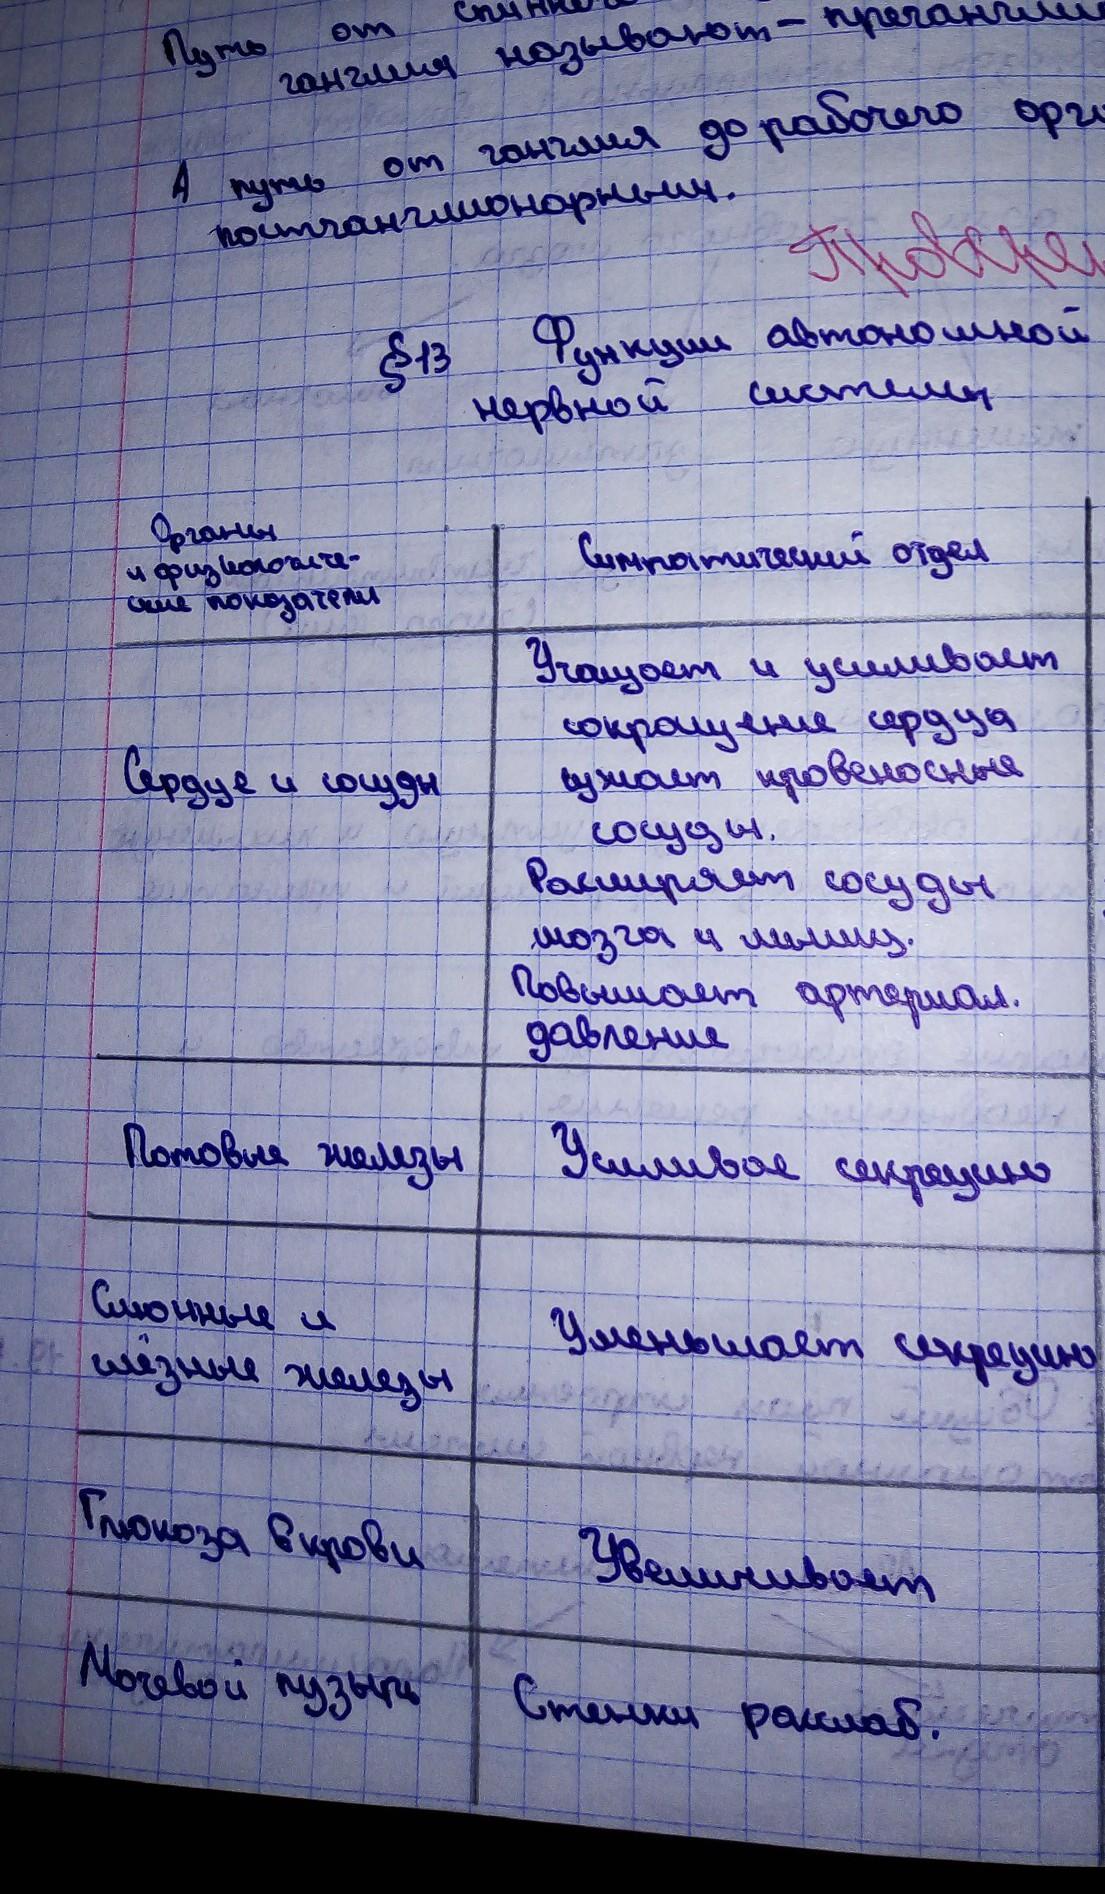 Путь от спинного
ганглия называют - преганглио
А путь от ганглия до рабочего орга
постганглионарным.
§13 Функции автономной
нервной системы
Органы
и физиологиче-
ские показатели
Симпатический отдел
Сердце и сосуды
Учащает и усиливает
сокращение сердца
сужает кровеносные
сосуды.
Расширяет сосуды
мозга и мышц.
Повышает артериал.
давление
Потовые железы
Усиливае секрецию
Слюнные и
слёзные железы
Уменьшает секрецию
Глюкоза в крови
Увеличивает
Мочевой пузырь
Стенки расслаб.